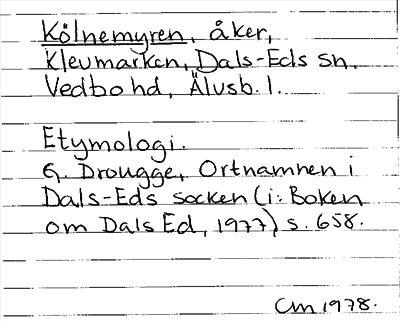 Kölnemyren, åker,
Kleumarken, Dals-Eds sn.
Vedbo hd, Älvsb. l.
Etymologi.
G. Drougge, Ortnamnen i
Dals-Eds socken (i: Boken
om Dals Ed, 1977) s. 658.
CM 1978.